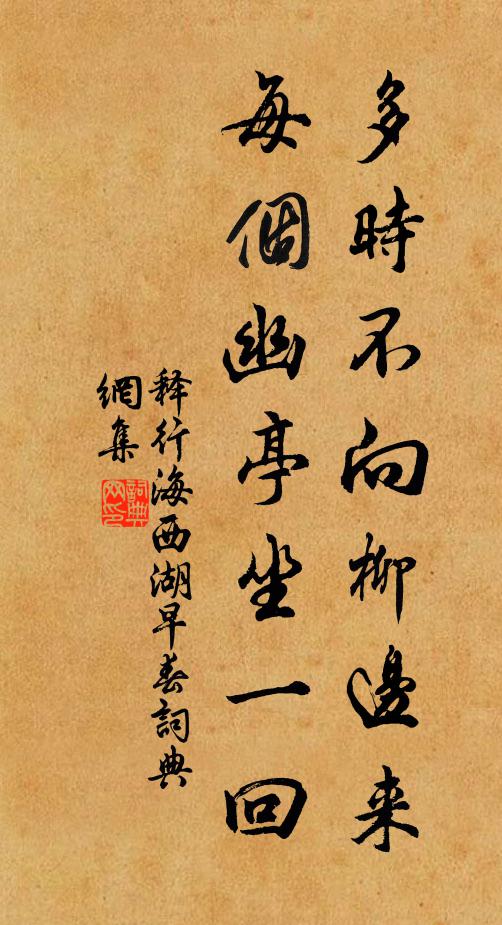 多時不向柳邊来
每個幽亭坐一回
释行海西湖早春詞典
網集
詞典
网印